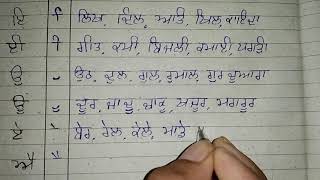 ਇ ਿ ਲਿਖ, ਦਿਲ, ਆਦਿ, ਖਿਲ, ਕਾਇਦਾ
ਈ ੀ ਗੀਤ, ਕਮੀ, ਬਿਜਲੀ, ਕਮਾਈ, ਧਰਤੀ
ਉ ੁ ਉਠ, ਦੁਲ, ਗੁਲ, ਰੁਮਾਲ, ਗੁਰਦੁਆਰਾ
ਊ ੂ ਦੂਰ, ਜਾਦੂ, ਚਾਕੂ, ਖਜੂਰ, ਮਗਰੂਰ
ਏ ੇ ਬੇਰ, ਰੇਲ, ਕੇਲੇ, ਮਾਤੇ
ਐ ੈ